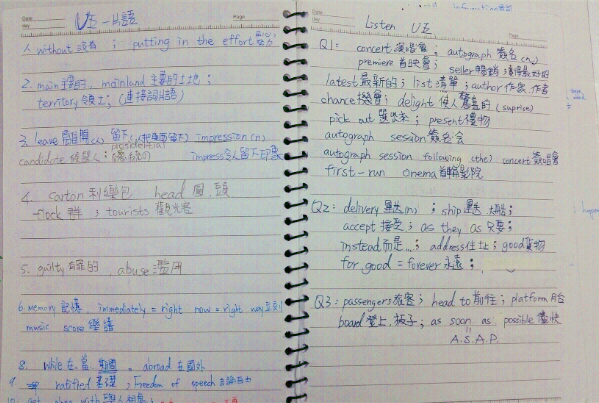 Date
U五-片語
Page
1. without 沒有 ; putting in the effort 努力
2. main 主要的, mainland 主要的土地 ;
territory 領土 ; (連接詞片語)
3. leave 離開(v) 留下 impression (n)
presidential
candidate 候選人 ; impress 令人留下印象
4. carton 利樂包 head 圖.頭
flock 群 ; tourists 觀光客
5. guilty 有罪的 , abuse 濫用
6. memory 記憶 immediately = right now = right way
music score 樂譜
8. while 在.當.期間 . abroad 在國外
9. ratified ; Freedom of speech 言論自由
Date
Listen U五
Page
Q1: concert 演唱會 ; autograph 簽名 (n)
premiere 首映會 ; seller 暢銷
latest 最新的 ; list 清單 ; author 作家 作者
chance 機會 ; delight 使人驚喜的 (suprise)
pick out 選出來 ; present 禮物
autograph session 簽名會
autograph session following (the) concert
first-run cinema 首輪影院
Q2: delivery 運送(n) ; ship 運送 大船 ;
accept 接受 ; as they as 只要 ;
instead 而是... ; address 住址 ; good 貨物
for good = forever 永遠 ;
Q3: passengers 旅客 ; head to 前往 ; platform 月台
board 登上.板子 ; as soon as possible 盡快
=
A.S.A.P.